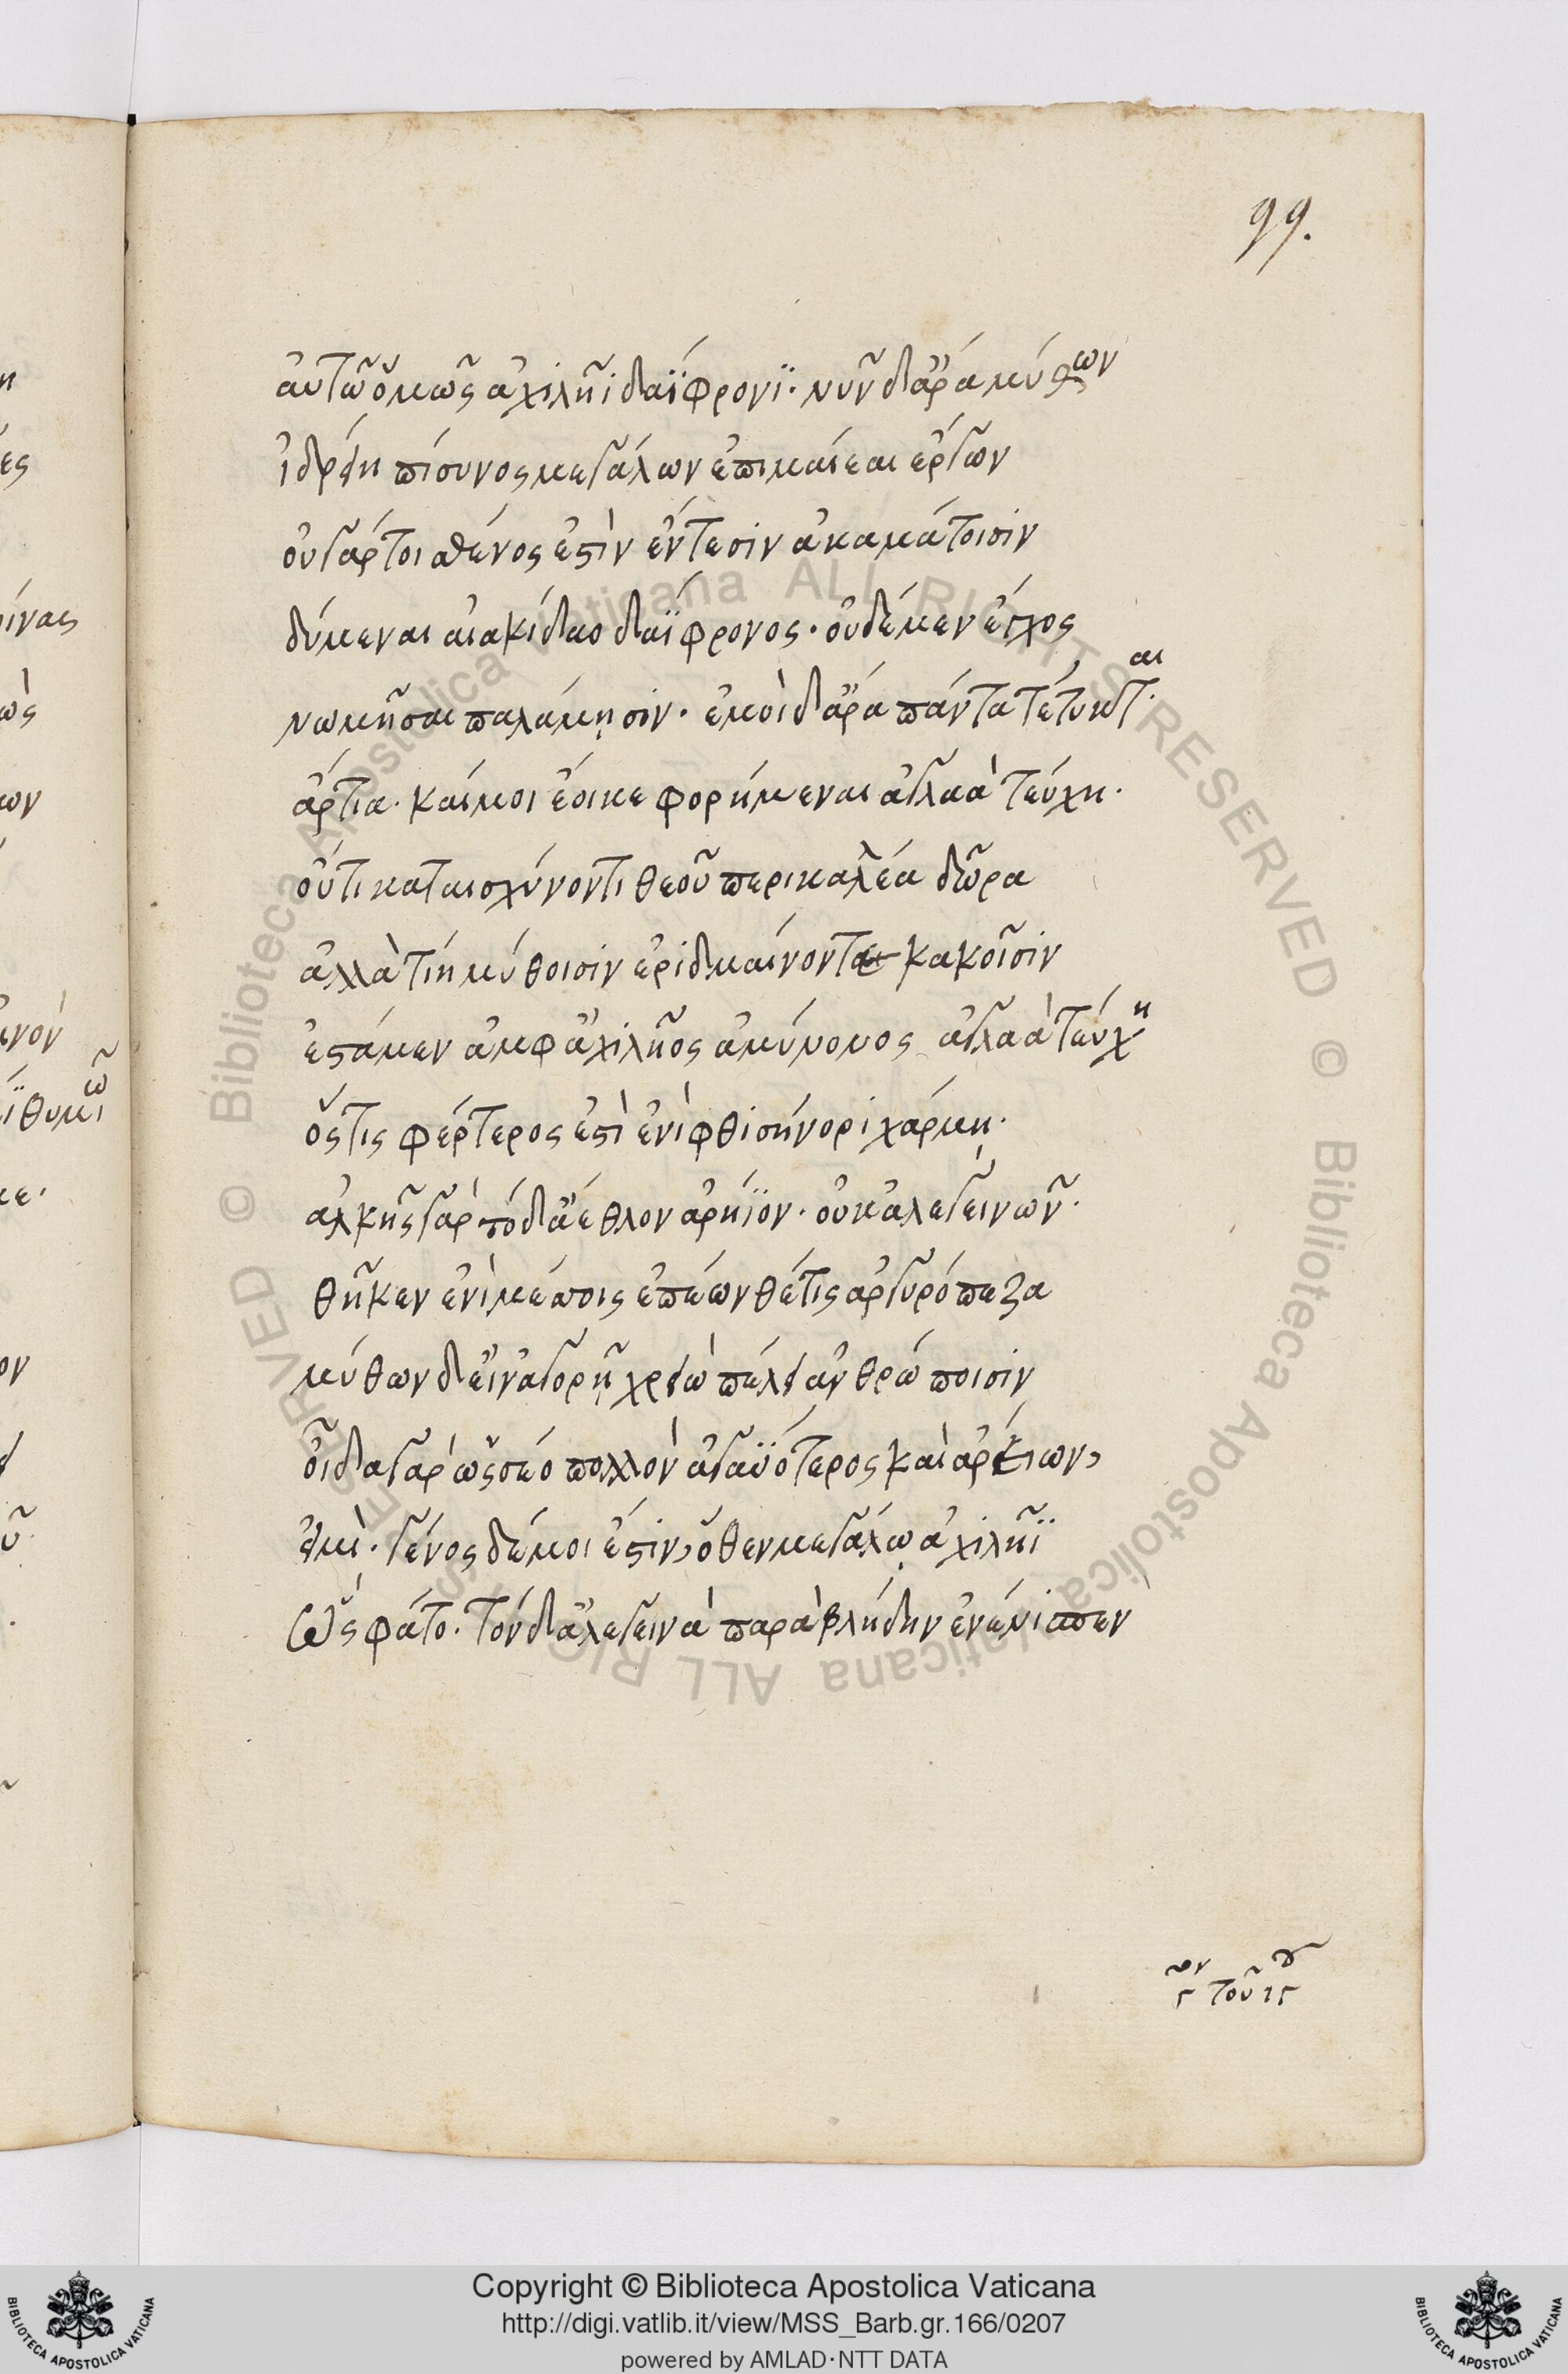 99.
αὐτῶ ὅμως ἀχιλῆϊ δαΐφρονϊ· νῦν δ' ἄρα μύθων
ἰδρείη πίσυνος μεγάλων ἐπιμαίεαι ἔργων
οὐ γάρ τοι σθένος ἐστὶν ἔντεσιν ἀκαμάτοισιν
δύμεναι αἰακίδαο δαΐφρονος· οὐδέ μεν ἔγχος
νωμῆσαι παλάμῃσιν· ἐμοὶ δ' ἄρα πάντα τέτυκται·
ἄρτια· καί μοι ἔοικε φορήμεναι ἀγλαὰ τεύχη·
οὔτι καταισχύνοντι θεοῦ περικαλλέα δῶρα
ἀλλὰ τίη μύθοισιν ἐριδμαίνοντε κακοῖσιν
ἔσταμεν ἀμφ' ἀχιλῆος ἀμύμονος ἀγλαὰ τεύχη
ὅς τις φέρτερος ἐστὶ ἐνὶ φθισήνορι χάρμῃ·
ἀλκῆς γὰρ τόδ' ἄεθλον ἀρήϊον· οὐκ ἀλεγεινῶν·
θῆκεν ἐνὶ μέσσοις ἐπέων θέτις ἀργυρόπεζα
μύθων δ' εἰν ἀγορῇ χρειὼ πέλει ἀνθρώποισιν
οἶδα γὰρ ὡς σέο πολλὸν ἀγαϋότερος καὶ ἀρείων,
εἰμὶ· γένος δέ μοι ἔστιν, ὅθεν μεγάλῳ ἀχιλῆϊ
Ὣς φάτο· τὸν δ' ἀλεγεινὰ παραβλήδην ἐνένιπεν
τοῦ ις
Copyright © Biblioteca Apostolica Vaticana
http://digi.vatlib.it/view/MSS_Barb.gr.166/0207
powered by AMLAD·NTT DATA